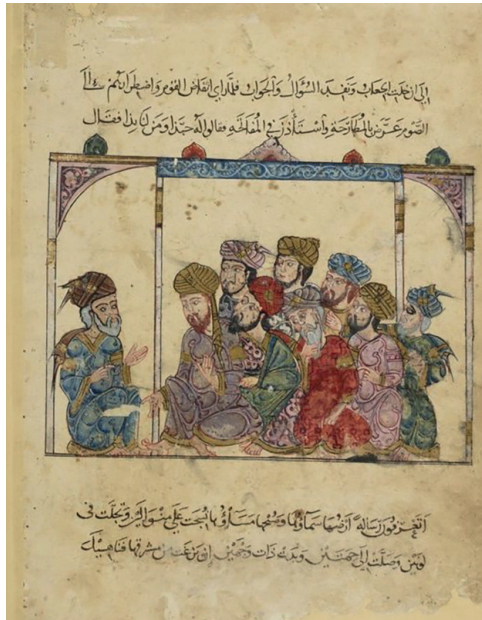 الى ان خلت الجعاب ونفد السؤال والجواب فلما راى انفاض القوم واضطرارهم الى
الصوم عرض بالمطارحة واستأذن في المفاتحة فقالوا له حبذا ومن لنا بذا فقال
اتعرفون رسالة ارضها سماؤها وصبحها مساؤها نسجت على منوالين وتجلت في
لونين وصلت الى جهتين وبدت ذات وجهين ان بزغت من مشرقها فناهيك